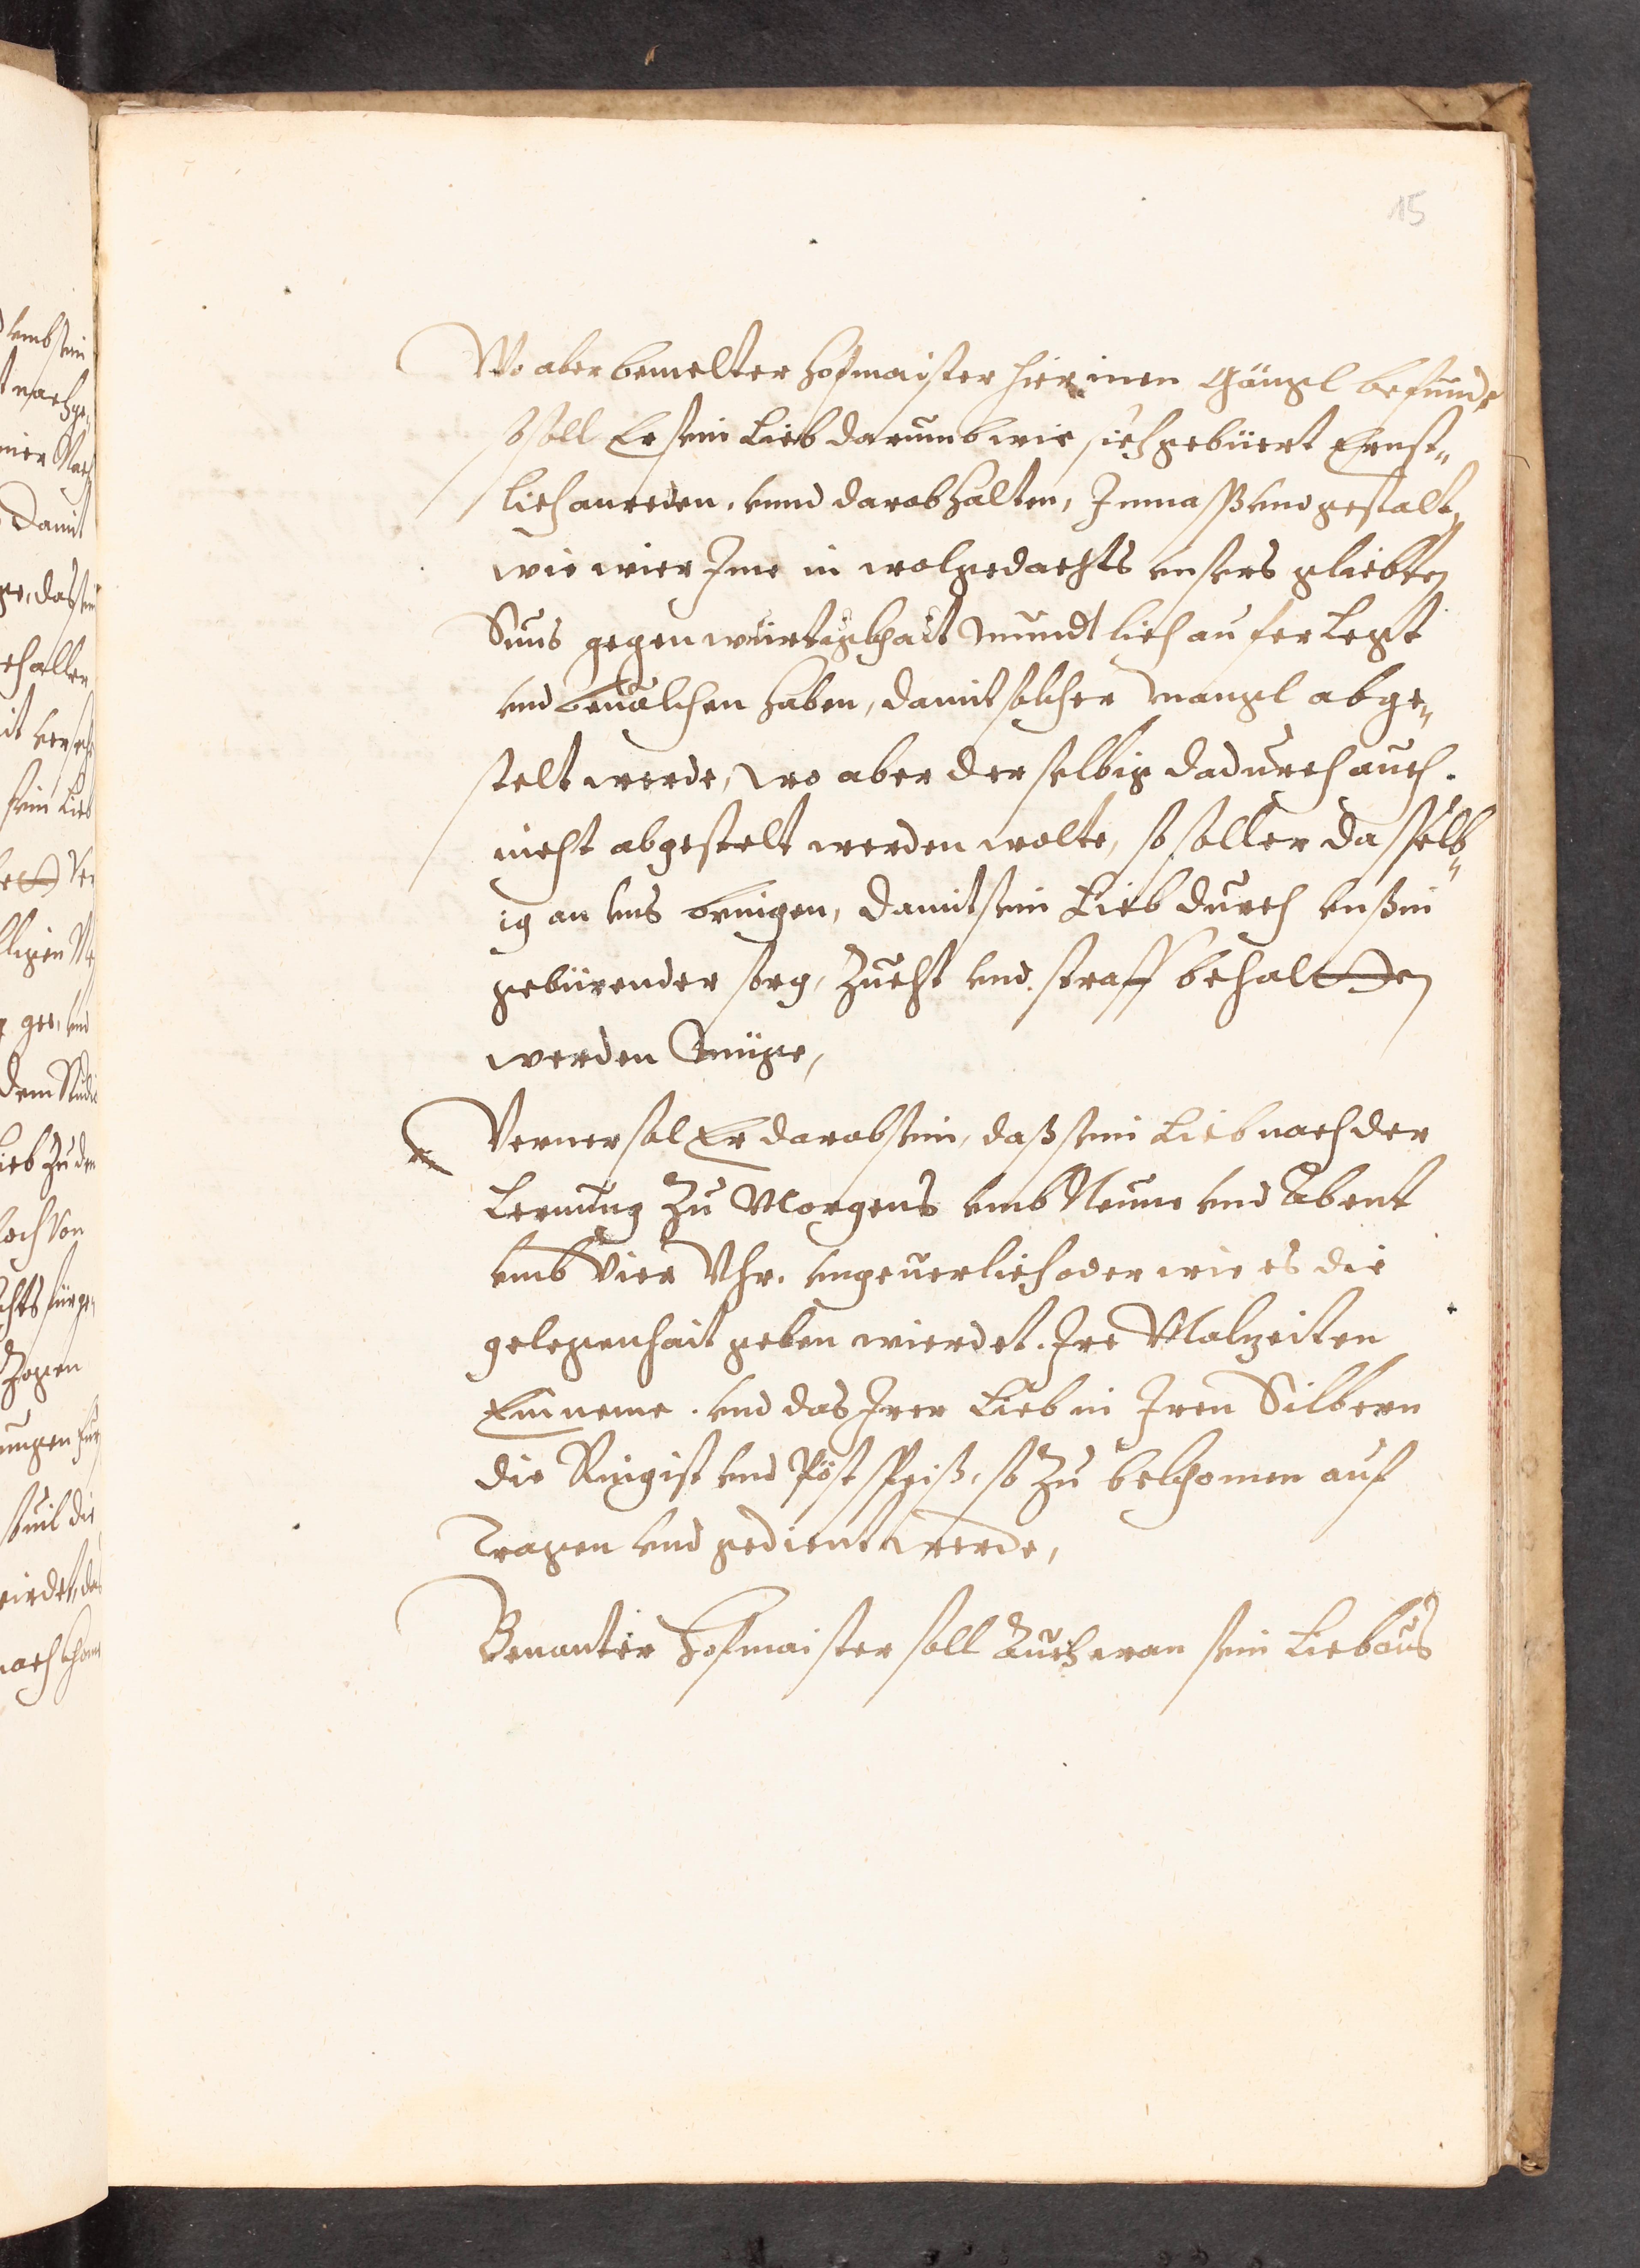 15
Wo aber bemelter Hofmaister hierinen Mängl befunde
Soll Er sein Lieb darumb wie sich gebüert Ernst„
lich anreden, vnnd darob halten, Inmassen vnd gestalt,
wie wier Ime in wolgedachts vnsers gliebten
Suns gegenwürtigkhait mundtlich auferlegt
vnd beuolchen haben, damit solcher mangl abge„
stelt werde, wo aber derselbig dadurch auch.
nicht abgestelt werden wolte, so soll er dasselb„
ig an vns bringen, damit sein Lieb durch vnser in
gebürender sorg, Zucht vnd straff behalten
werden müge,
Verner sol Er darob sein, daß sein Lieb nach der
Lernung Zu Morgens vmb Neune vnd Abent
vmb Vier Vhr. vngeuerlich oder wie es die
gelegenhait geben wierdet. Ire Malzeiten
Einneme. vnd das Irer Lieb in Iren Silbern
die Ringist vnd Pöst speiß, so Zu bekhomen auf
Tragen vnd gedient werde,
Benanter Hofmaister soll Auch wan sein Lieb aus